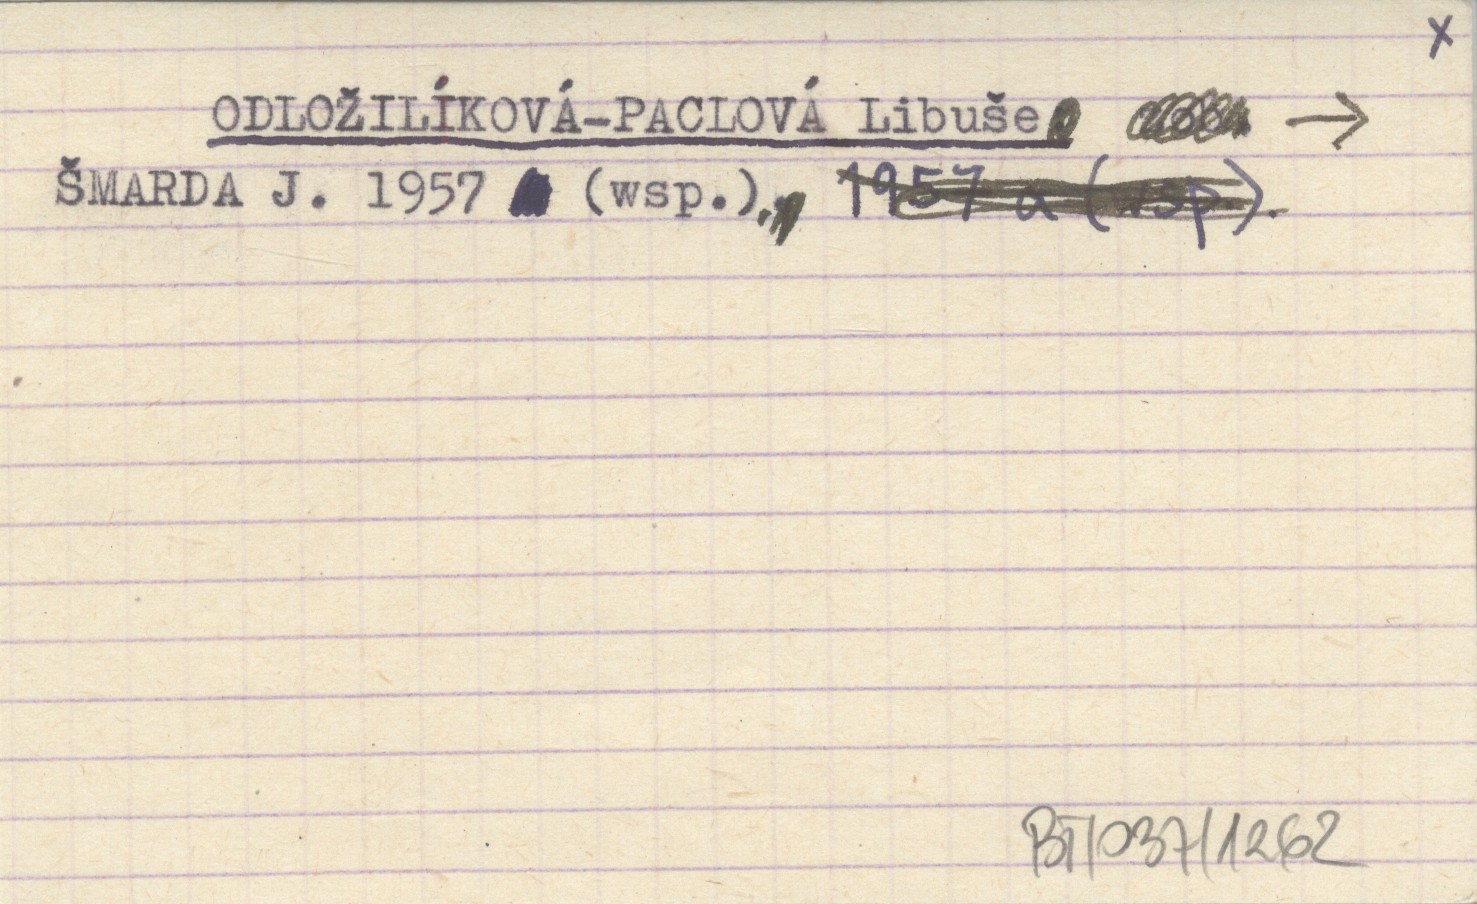 x
ODLOŽILÍKOVÁ-PACLOVÁ Libuše →
ŠMARDA J. 1957 (wsp.), 1957 a (wsp.).
BT/037/1262